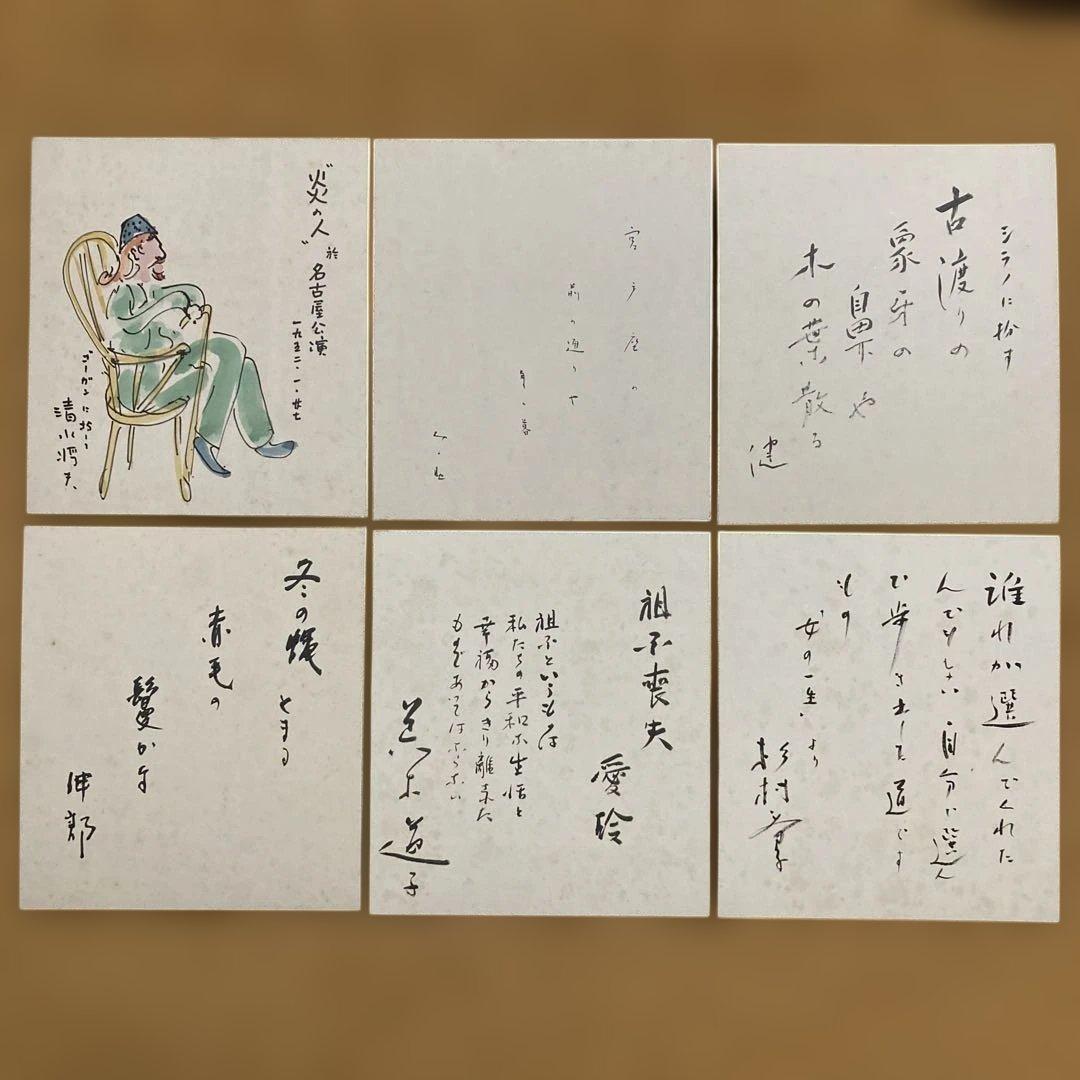 "炎の人"
於 名古屋公演
一九五二・一・廿七
ゴーガンに扮し
清水将夫
宮戸座の
前の通りや
年の暮
シラノに扮す
古渡りの
象牙の
鼻や
木の葉散る
健
冬の蝿
とまる
赤毛の
鬘かな
伸郎
祖不喪失
愛玲
祖不というものは
私たちの平和な生活と
幸福からきり離された
ものであってはならない
道子
誰れが選んでくれた
んでもしない自分で選ん
で歩き出した道です
もの
"女の一生"より
杉村春子